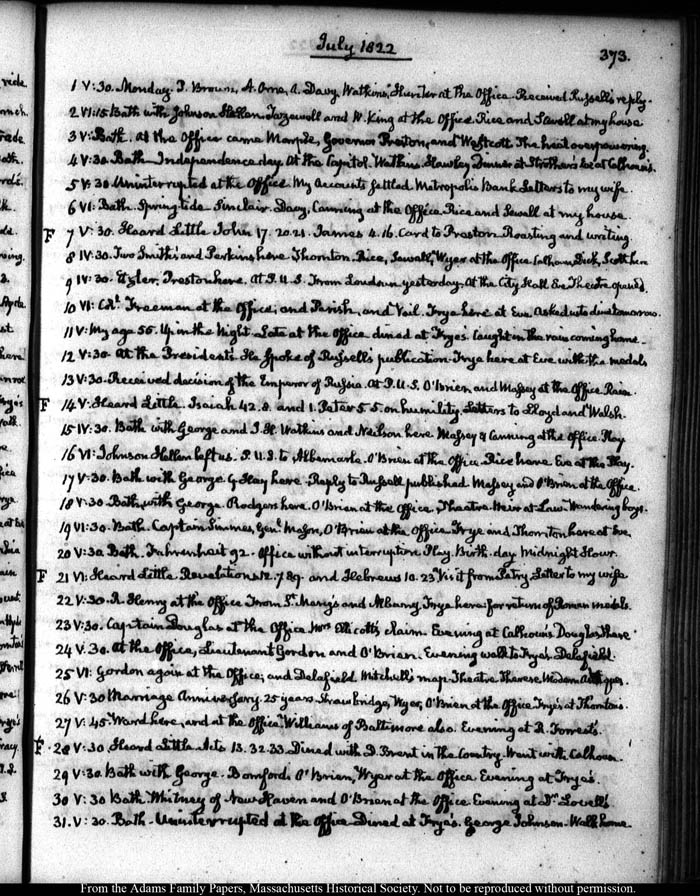 July 1822
373.
1 V:30. Monday. J. Brown, A. Orne, A. Davy Watkins, Hunter at the Office. Received Russell's reply.
2 VI:15 Bath with Johnson Hellen. Tazewell and W. King at the Office. Rice and Sewall at my house
3 V: Bath. At the Office came Governor Preston, and Westcott. The heat overpowering.
4 V:30. Bath. Independence day. At the Capitol. Watkins. Hawley Dinner at Strothers Eve at Calhoun's.
5 V:30 Uninterrupted at the Office. My Accounts settled Metropolis Bank Letters to my wife.
6 VI: Bath. Spring tide Sinclair. Davy, Canning at the Office. Rice and Sewall at my house.
F 7 V:30. Heard Little John 17. 20.21. James 4.16. Card to Preston Roasting and writing.
8 IV:30. Two Smith's and Perkins here Thornton. Rice, Sewall, Wyer at the Office Calhoun, Dick, Scott here
9 IV:30. Etzler, Preston here. At P.U.S. From Loudoun yesterday. At the City Hall Eve Theatre opened.
10 VI: Freeman at the Office, and Parish, and Vail. Frye here at Eve. Asked us to dine tomorrow.
11 V: My age 55. Up in the Night. Late at the Office dined at Frye's. Caught in the rain coming home.
12 V:30. At the President's. He spoke of Russell's publication. Frye here at Eve with the medals
13 V:30. Received decision of the Emperor of Russia. At P.U.S. O'Brien and Massey at the Office. Rain.
F 14 V: Heard Little. Isaiah 42.8. and 1. Peter 5 5. on humility. Letters to Lloyd and Walsh.
15 IV:30. Bath with George and J. H. Watkins and Neilson here Massey & Canning at the Office. Play
16 VI: Johnson Hellen left us. P.U.S. to Albemarle. O'Brien at the Office. Rice here Eve at the Play.
17 V:30. Bath with George G. Hay here. Reply to Russell published Massey and O'Brien at the Office.
18 V:30. Bath with George. Rodgers here. O'Brien at the Office. Theatre. Heir at Law. Wandering boys.
19 VI:30. Bath. Captain Simmes, Genl. Mason, O'Brien at the Office Frye and Thornton here at Eve.
20 V:30 Bath. Fahrenheit 92. Office without interruption Play. Birth-day Midnight Hour.
F 21 VI: Heard Little Revelations 12. 7 8 9. and Hebrews 10. 23 Visit from Petry. Letter to my wife
22 V:30. R. Henry at the Office From St. Mary's and Albany. Frye here for return of Roman medals.
23 V:30. Captain Douglas at the Office Mrs. Ellicott's claim. Evening at Calhoun's Douglas there
24 V.30. At the Office, Lieutenant Gordon and O'Brien. Evening walk to Frye's. Delafield.
25 VI: Gordon again at the Office; and Delafield Mitchell's map. Theatre. Therese. Modern Antiques.
26 V:30 Marriage Anniversary. 25 years. Strawbridge, Wyer, O'Brien at the Office. Frye's at Thornton's.
27 V:45. Ward here, and at the Office Williams of Baltimore also. Evening at R. Forrest's.
F 28 V:30. Heard Little. Acts 13. 32.33. Dined with D. Brent in the Country. Went with Calhoun.
29 V:30. Bath with George. Bomford. O'Brien, Wyer at the Office. Evening at Frye's.
30 V:30 Bath. Whitney of New Haven and O'Brien at the Office. Evening at Dr. Lovell's
31. V:30. Bath. Uninterrupted at the Office Dined at Frye's. George Johnson. Walk home
From the Adams Family Papers, Massachusetts Historical Society. Not to be reproduced without permission.